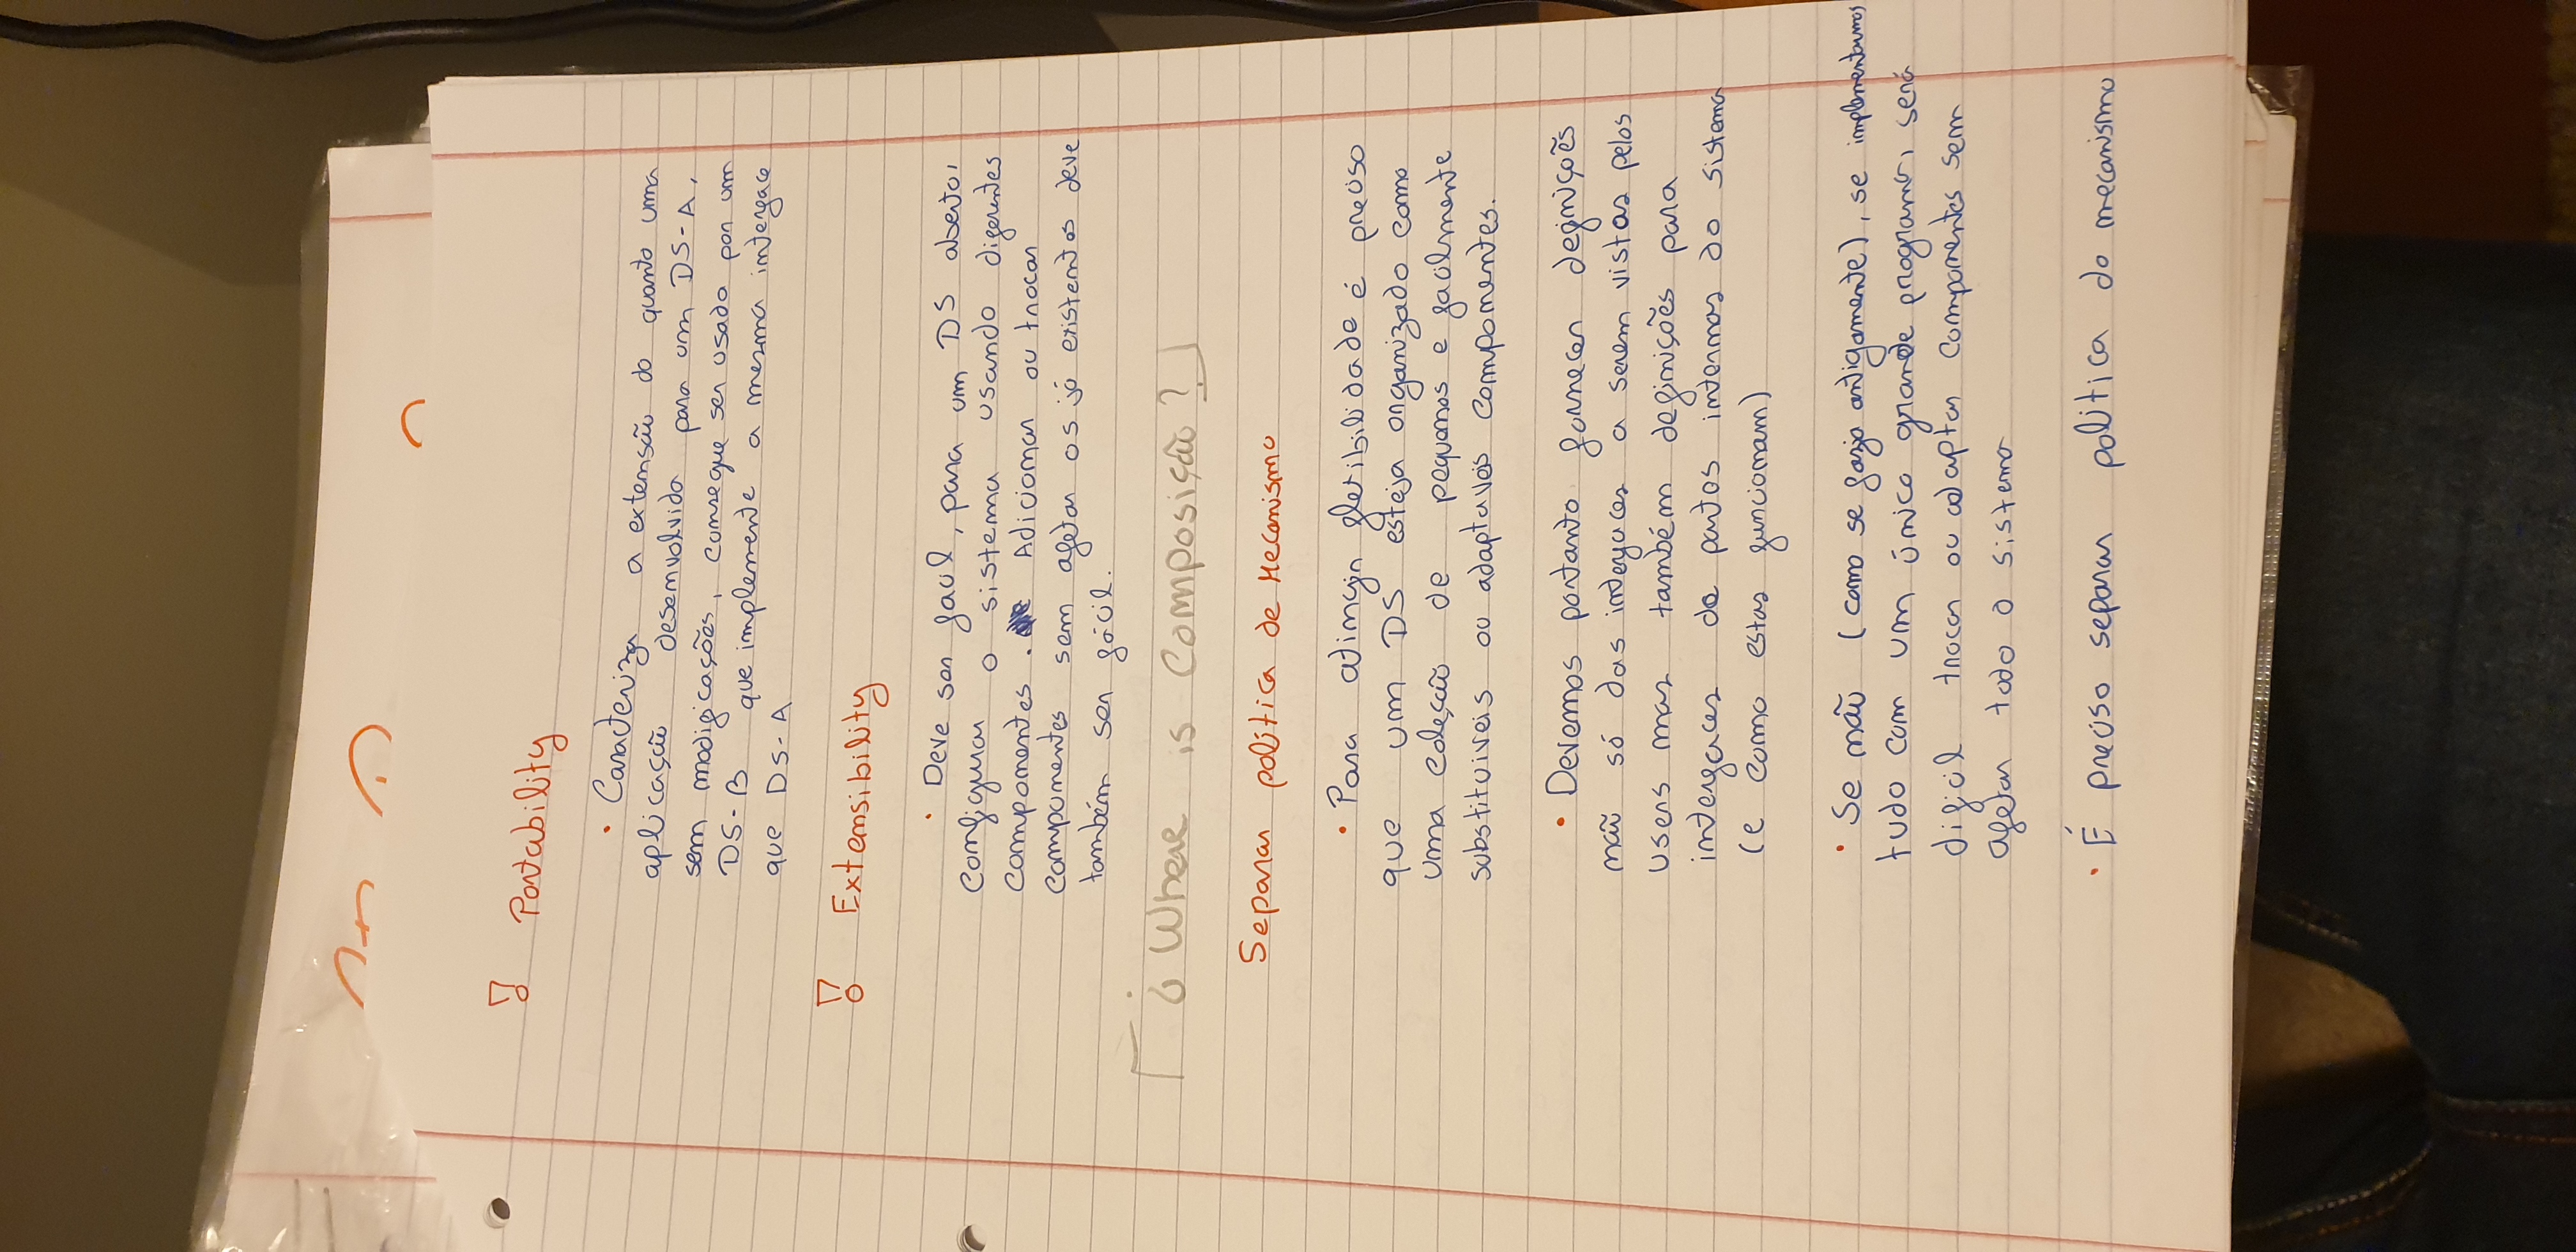 ! Portability
• Caracteriza a extensão do quanto uma
aplicação desenvolvida para um DS-A,
sem modificações, consegue ser usada por um
DS-B que implemente a mesma interface
que DS-A
! Extensibility
• Deve ser facil, para um DS aberto,
configurar o sistema usando diferentes
componentes. Adicionar ou trocar
componentes sem afetar os já existentes deve
também ser fácil.
¿ Where is Composição?
Separar política de Mecanismo
• Para atingir flexibilidade é preciso
que um DS esteja organizado como
uma coleção de pequenos e facilmente
substituiveis ou adaptaveis componentes.
• Devemos portanto fornecer definições
não só das interfaces a serem vistas pelos
users mas também definições para
interfaces de partes internas do sistema
(e como estas funcionam)
• Se não (como se fazia antigamente), se implementarmos
tudo com um único grande programa, será
difícil trocar ou adaptar componentes sem
afetar todo o sistema
• É preciso separar politica do mecanismo